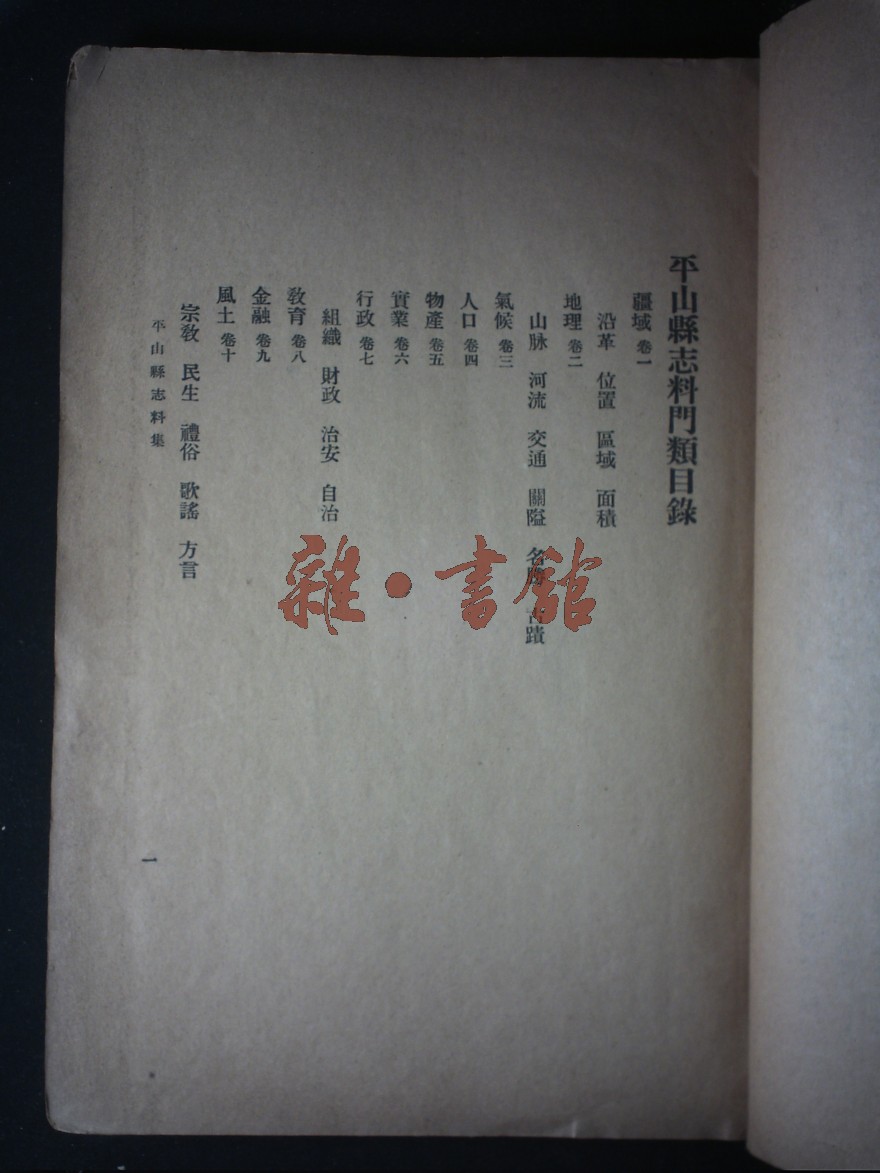 平山縣志料門類目錄
疆域 卷一
沿革 位置 區域 面積
地理 卷二
山脉 河流 交通 關隘 名勝 古蹟
氣候 卷三
人口 卷四
物產 卷五
實業 卷六
行政 卷七
組織 財政 治安 自治
教育 卷八
金融 卷九
風土 卷十
宗教 民生 禮俗 歌謠 方言
平山縣志料集
一
雜·書館